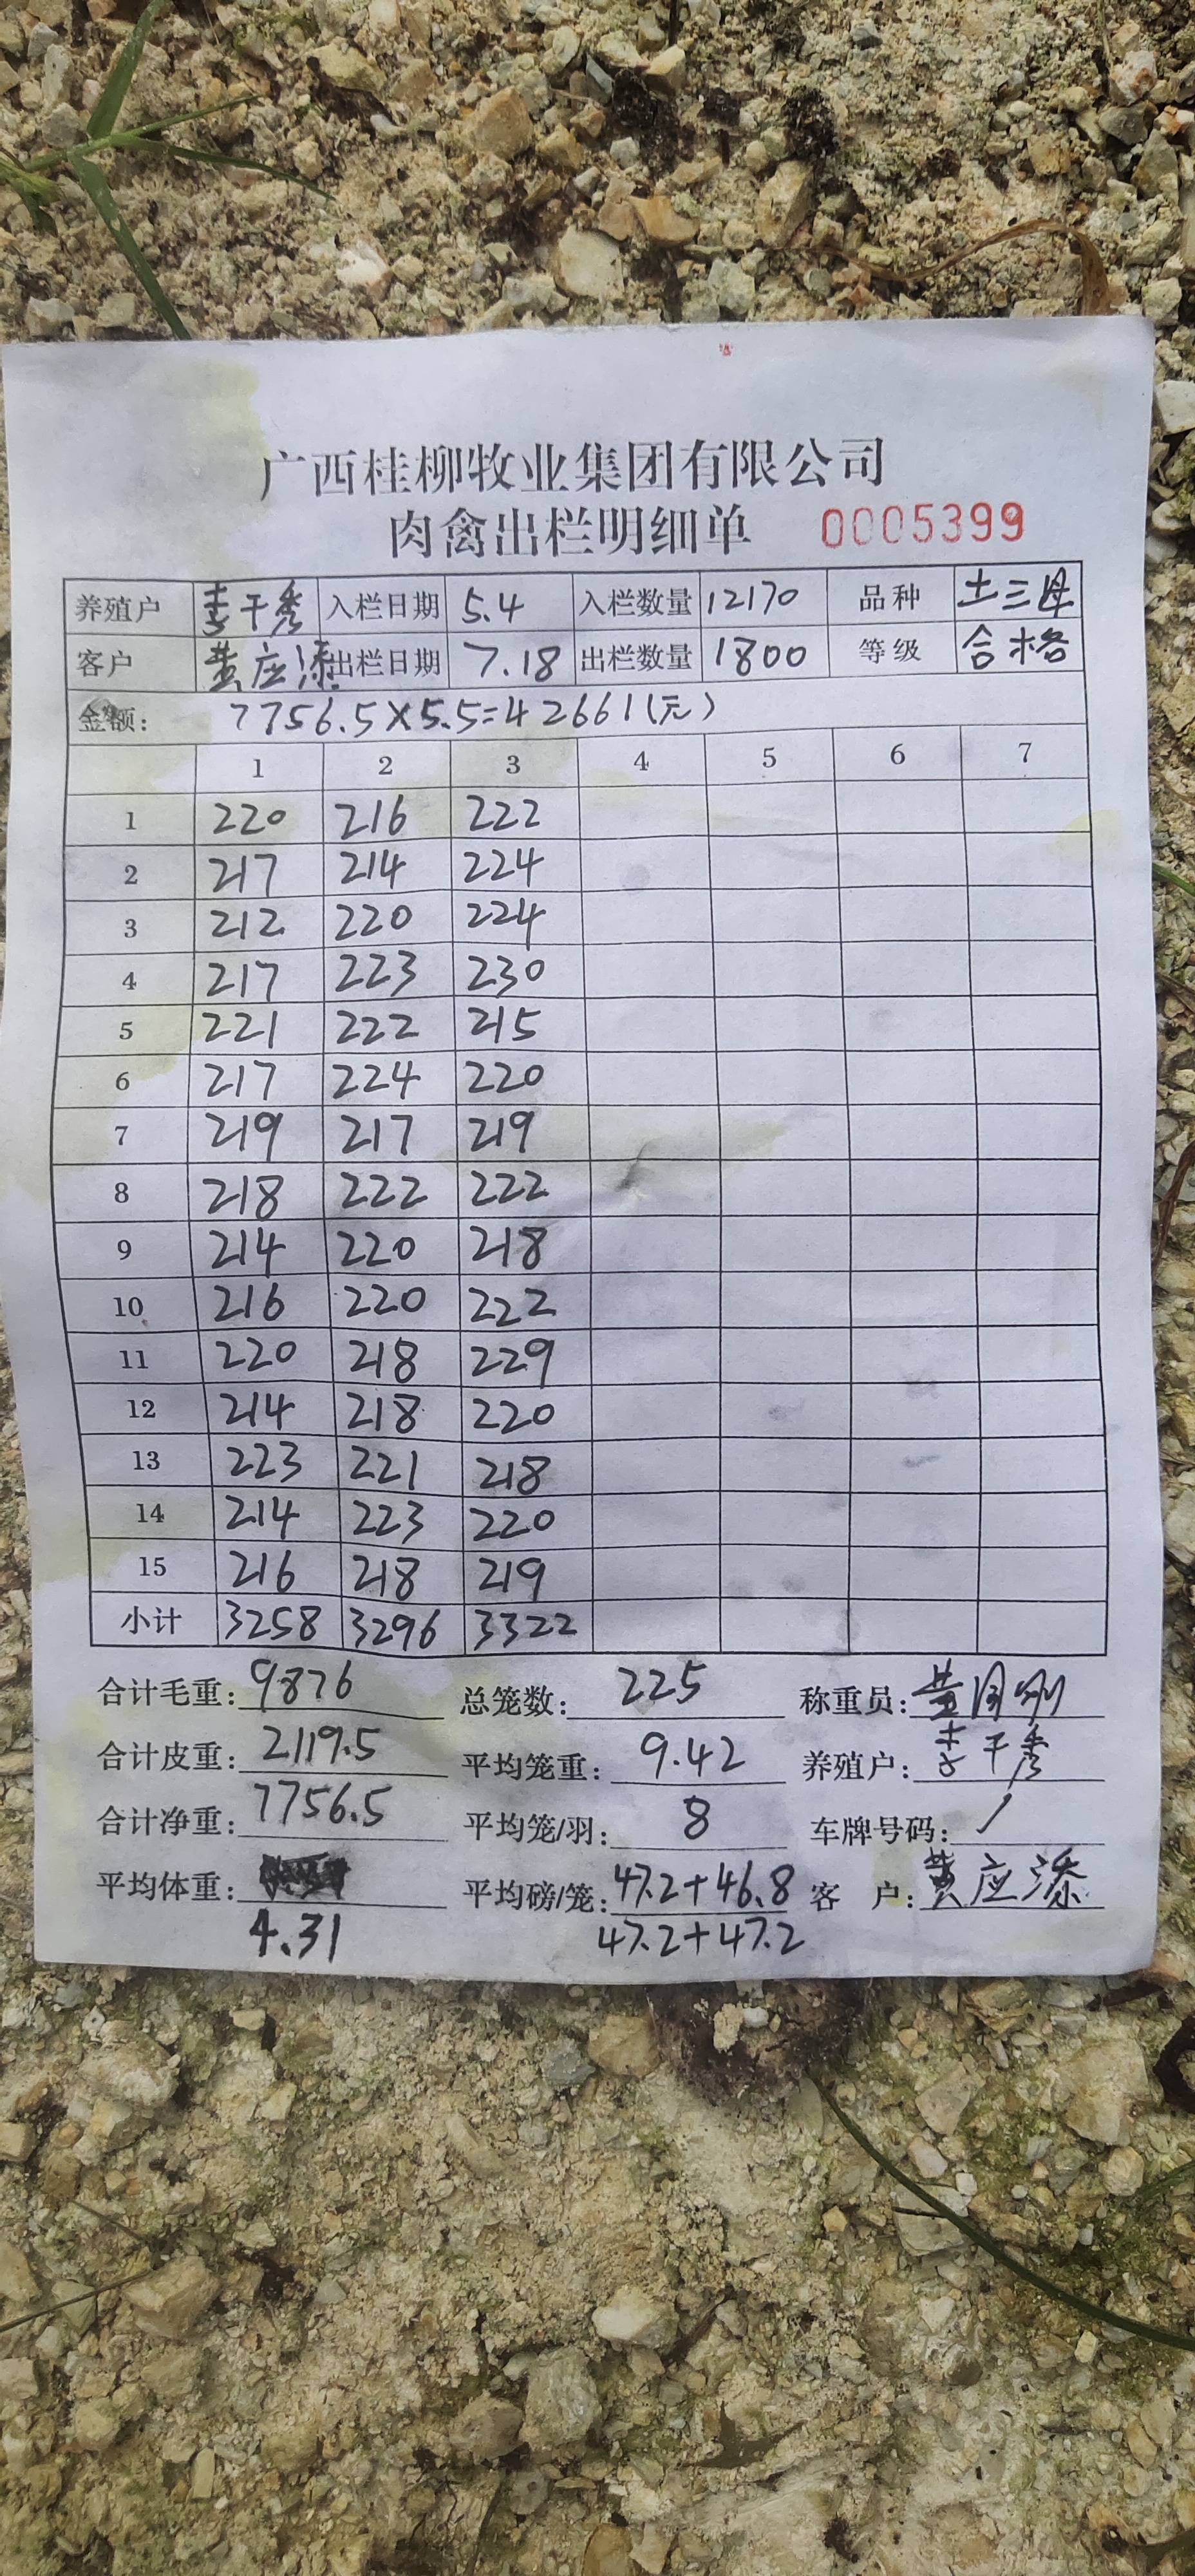 广西桂柳牧业集团有限公司
肉禽出栏明细单 0005399
养殖户 李干秀 入栏日期 5.4 入栏数量 12170 品种 土三母
客户 黄应添 出栏日期 7.18 出栏数量 1800 等级 合格
金额: 7756.5×5.5=42661(元)
1 2 3 4 5 6 7
1 220 216 222
2 217 214 224
3 212 220 224
4 217 223 230
5 221 222 215
6 217 224 220
7 219 217 219
8 218 222 222
9 214 220 218
10 216 220 222
11 220 218 229
12 214 218 220
13 223 221 218
14 214 223 220
15 216 218 219
小计 3258 3296 3322
合计毛重: 9876 总笼数: 225 称重员: 黄
合计皮重: 2119.5 平均笼重: 9.42 养殖户: 李干秀
合计净重: 7756.5 平均笼/羽: 8 车牌号码: /
平均体重: 平均磅/笼: 47.2+46.8 客 户: 黄应添
4.31 47.2+47.2